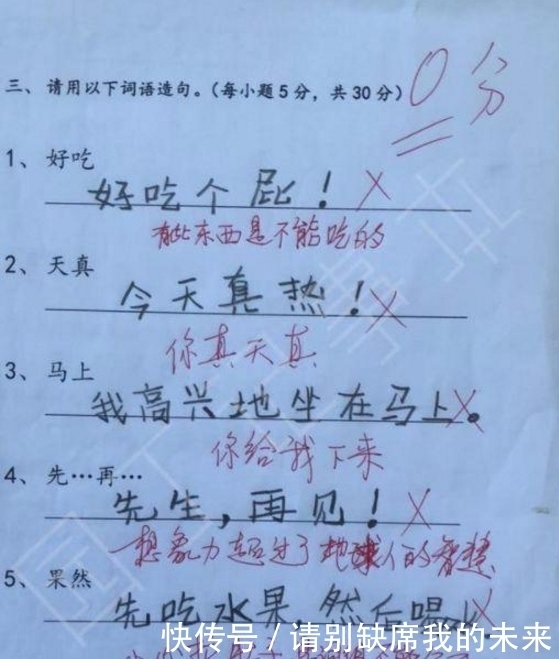 三、请用以下词语造句。(每小题5分，共30分)
0分
1、好吃
好吃个屁！
有些东西是不能吃的
2、天真
今天真热！
你真天真
3、马上
我高兴地坐在马上。
你给我下来
4、先…再…
先生，再见！
想象力超过了地球人的智慧
5、果然
先吃水果，然后喝
快传号/请别缺席我的未来